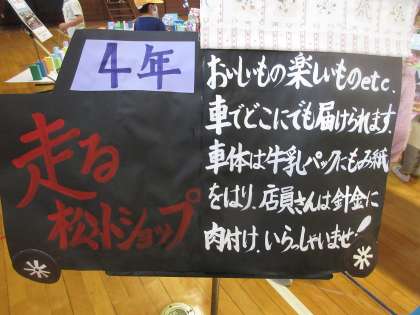 4年
走る
松小ショップ
おいしいもの楽しいものetc.
車でどこにでも届けられます.
車体は牛乳パックにもみ紙
をはり、店員さんは針金に
肉付け.いらっしゃいませ!